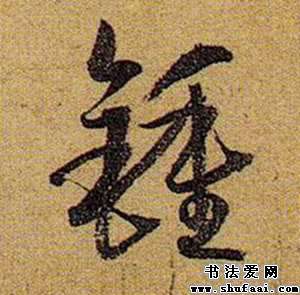 鍾
书法爱网
www.shufaai.com